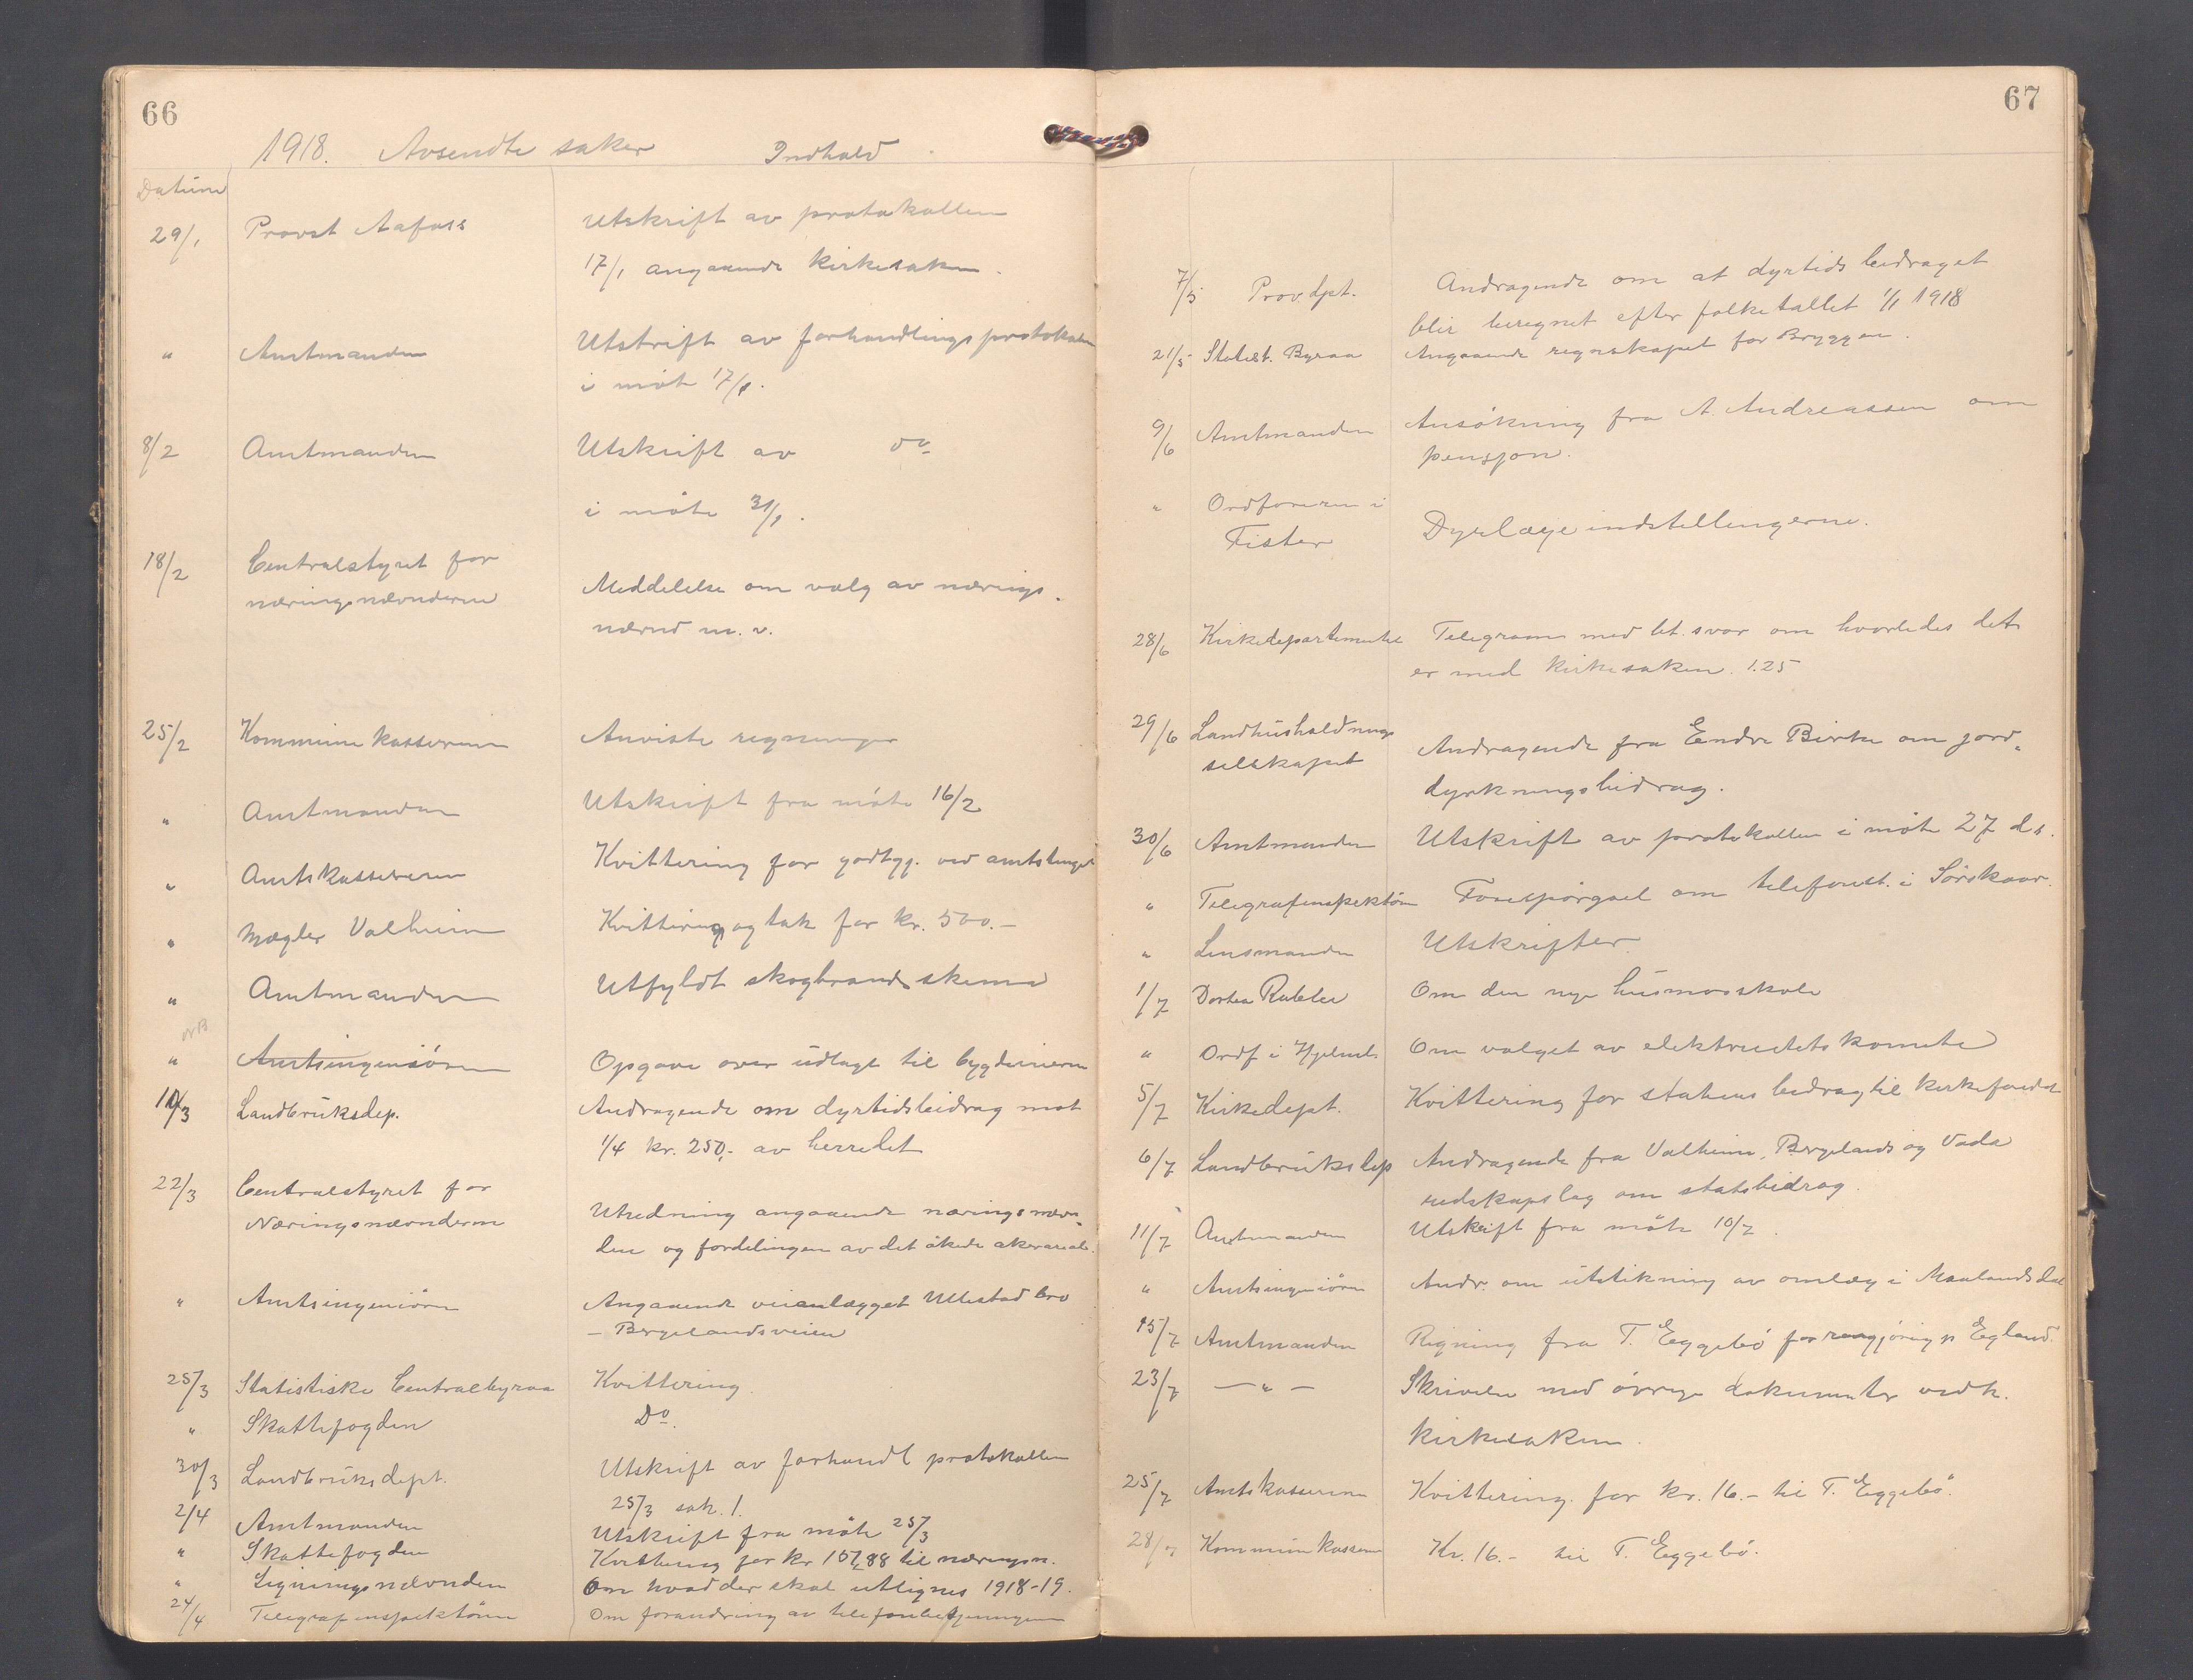 66
1918. Avsendte saker Indhald
Datum
29/1 Provst Aafoss Utskrift av protokollen
17/1 angaaende kirkesaken.
" Amtmanden Utskrift av forhandlingsprotokollen
i møte 17/1.
8/2 Amtmanden Utskrift av do
i møte 31/1.
18/2 Centralstyret for
næringsnævnderne Meddelelse om valg av nærings-
nævnd m. v.
25/2 Kommunekassereren Anviste regninger
" Amtmanden Utskrift fra møte 16/2
" Amtskassereren Kvittering for godtgj. ved amtstinget
" Mægler Valheim Kvittering og tak for kr. 500.-
" Amtmanden Utfyldt skogbrandskema
NB
" Amtsingeniøren Opgave over utlagt til bygdeveiene
10/3 Landbruksdep. Andragende om dyrtidsbidrag mot
1/4 kr. 250,- av herredet
22/3 Centralstyret for
Næringsnævnderne Utredning angaaende næringsnævn-
den og fordelingen av det økede akerareal.
" Amtsingeniøren Angaaende veianlægget Ullestad bro
– Bergelandsveien
25/3 Statistiske Centralbyraa Kvittering.
" Skattefogden Do.
30/3 Landbruksdept. Utskrift av forhandl protokollen
25/3 sak. 1.
2/4 Amtmanden Utskrift fra møte 25/3
" Skattefogden Kvittering for kr 157,88 til næringsn.
" Ligningsnævnden Om hvad der skal utlignes 1918-19.
24/4 Telegrafinspektøren Om forandring av telefonbetjeningen
67
7/5 Prov. dpt. Andragende om at dyrtidsbidraget
blir beregnet efter folketallet 1/1 1918
21/5 Statist. Byraa Angaaende regnskapet for Bryggen.
9/6 Amtmanden Ansøkning fra A. Andreassen om
pensjon.
" Ordføreren i
Fister Dyrlægeindstillingerne.
28/6 Kirkedepartementet Telegram med bt. svar om hvorledes det
er med kirkesaken. 1.25
29/6 Landhusholdnings
selskapet Andragende fra Endre Birke om jord-
dyrkningsbidrag.
30/6 Amtmanden Utskrift av protokollen i møte 27 ds.
" Telegrafinspektøren Forespørgsel om telefonst. i Sørskaar.
" Lensmanden Utskrifter.
1/7 Dortea Rabbe Om den nye husmorskole
" Ordf i Hjelmel. Om valget av elektricitetskomite
5/7 Kirkedept. Kvittering for statens bidrag til kirkefondet
6/7 Landbruksdep Andragende fra Valheim, Bergelands og Vada
redskapslag om statsbidrag.
11/7 Amtmanden Utskrift fra møte 10/7.
" Amtsingeniøren Andr. om utstikning av omlæg i Maalandsdal
15/7 Amtmanden Rigning fra T. Eggebø for rengjøring p Egland.
23/7 — " — Skrivelse med øvrige dokumenter vedk.
kirkesaken.
25/7 Amtskassereren Kvittering for kr. 16.- til T. Eggebø.
28/7 Kommunekasseren Kr. 16.- til T. Eggebø.